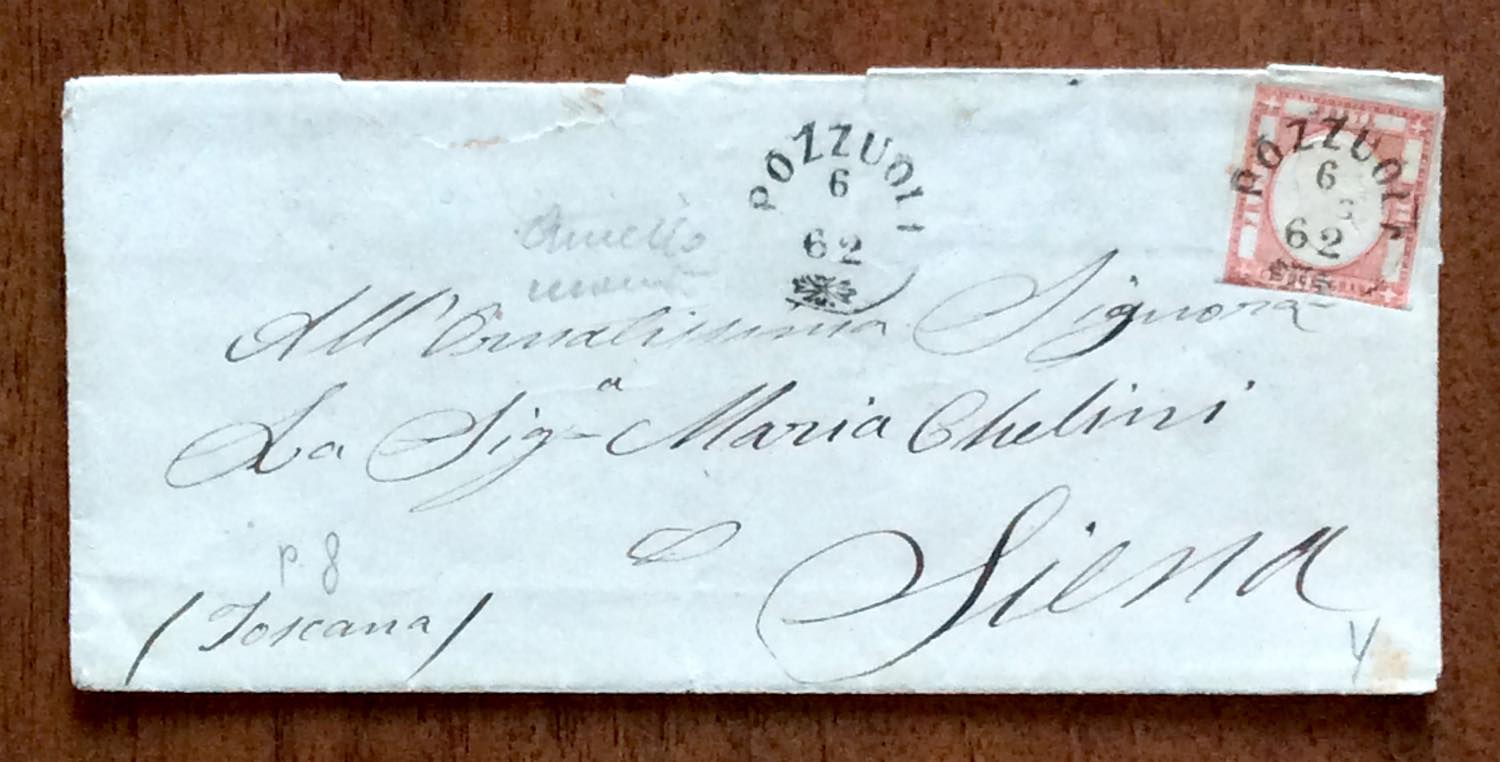 POZZUOLI
6
62
POZZUOLI
6
62
All'Ornatissima Signora
La Sig.ª Maria Chelini
Siena
p. 8
(Toscana)